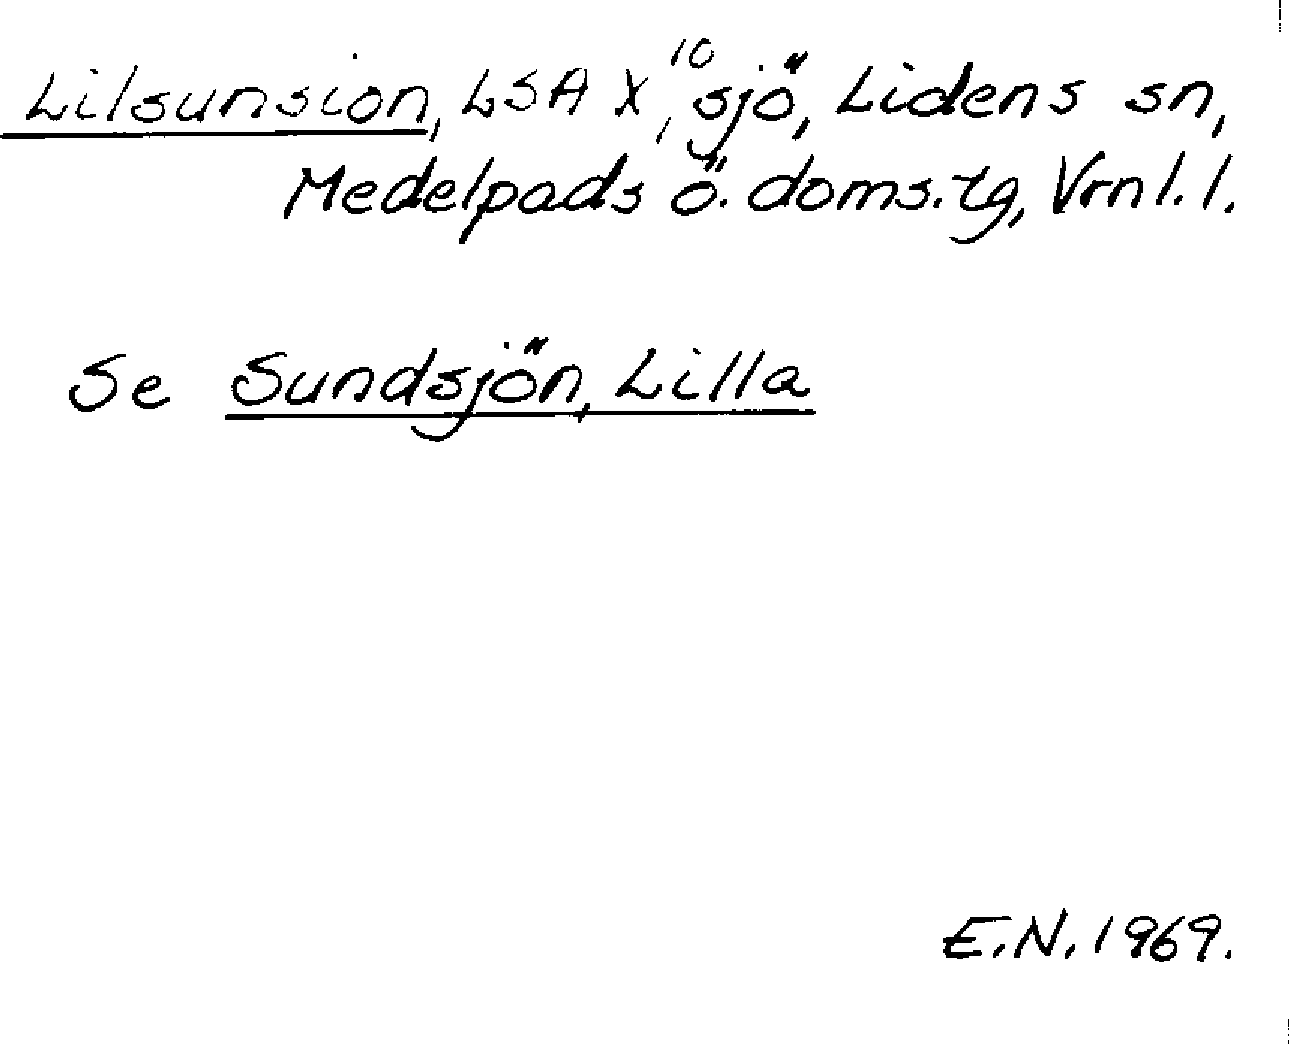 Lilsunsion, LSA X, 10 sjö, Lidens sn,
Medelpads ö. doms.tg, Vrnl. l.
Se Sundsjön, Lilla
E.N. 1969.